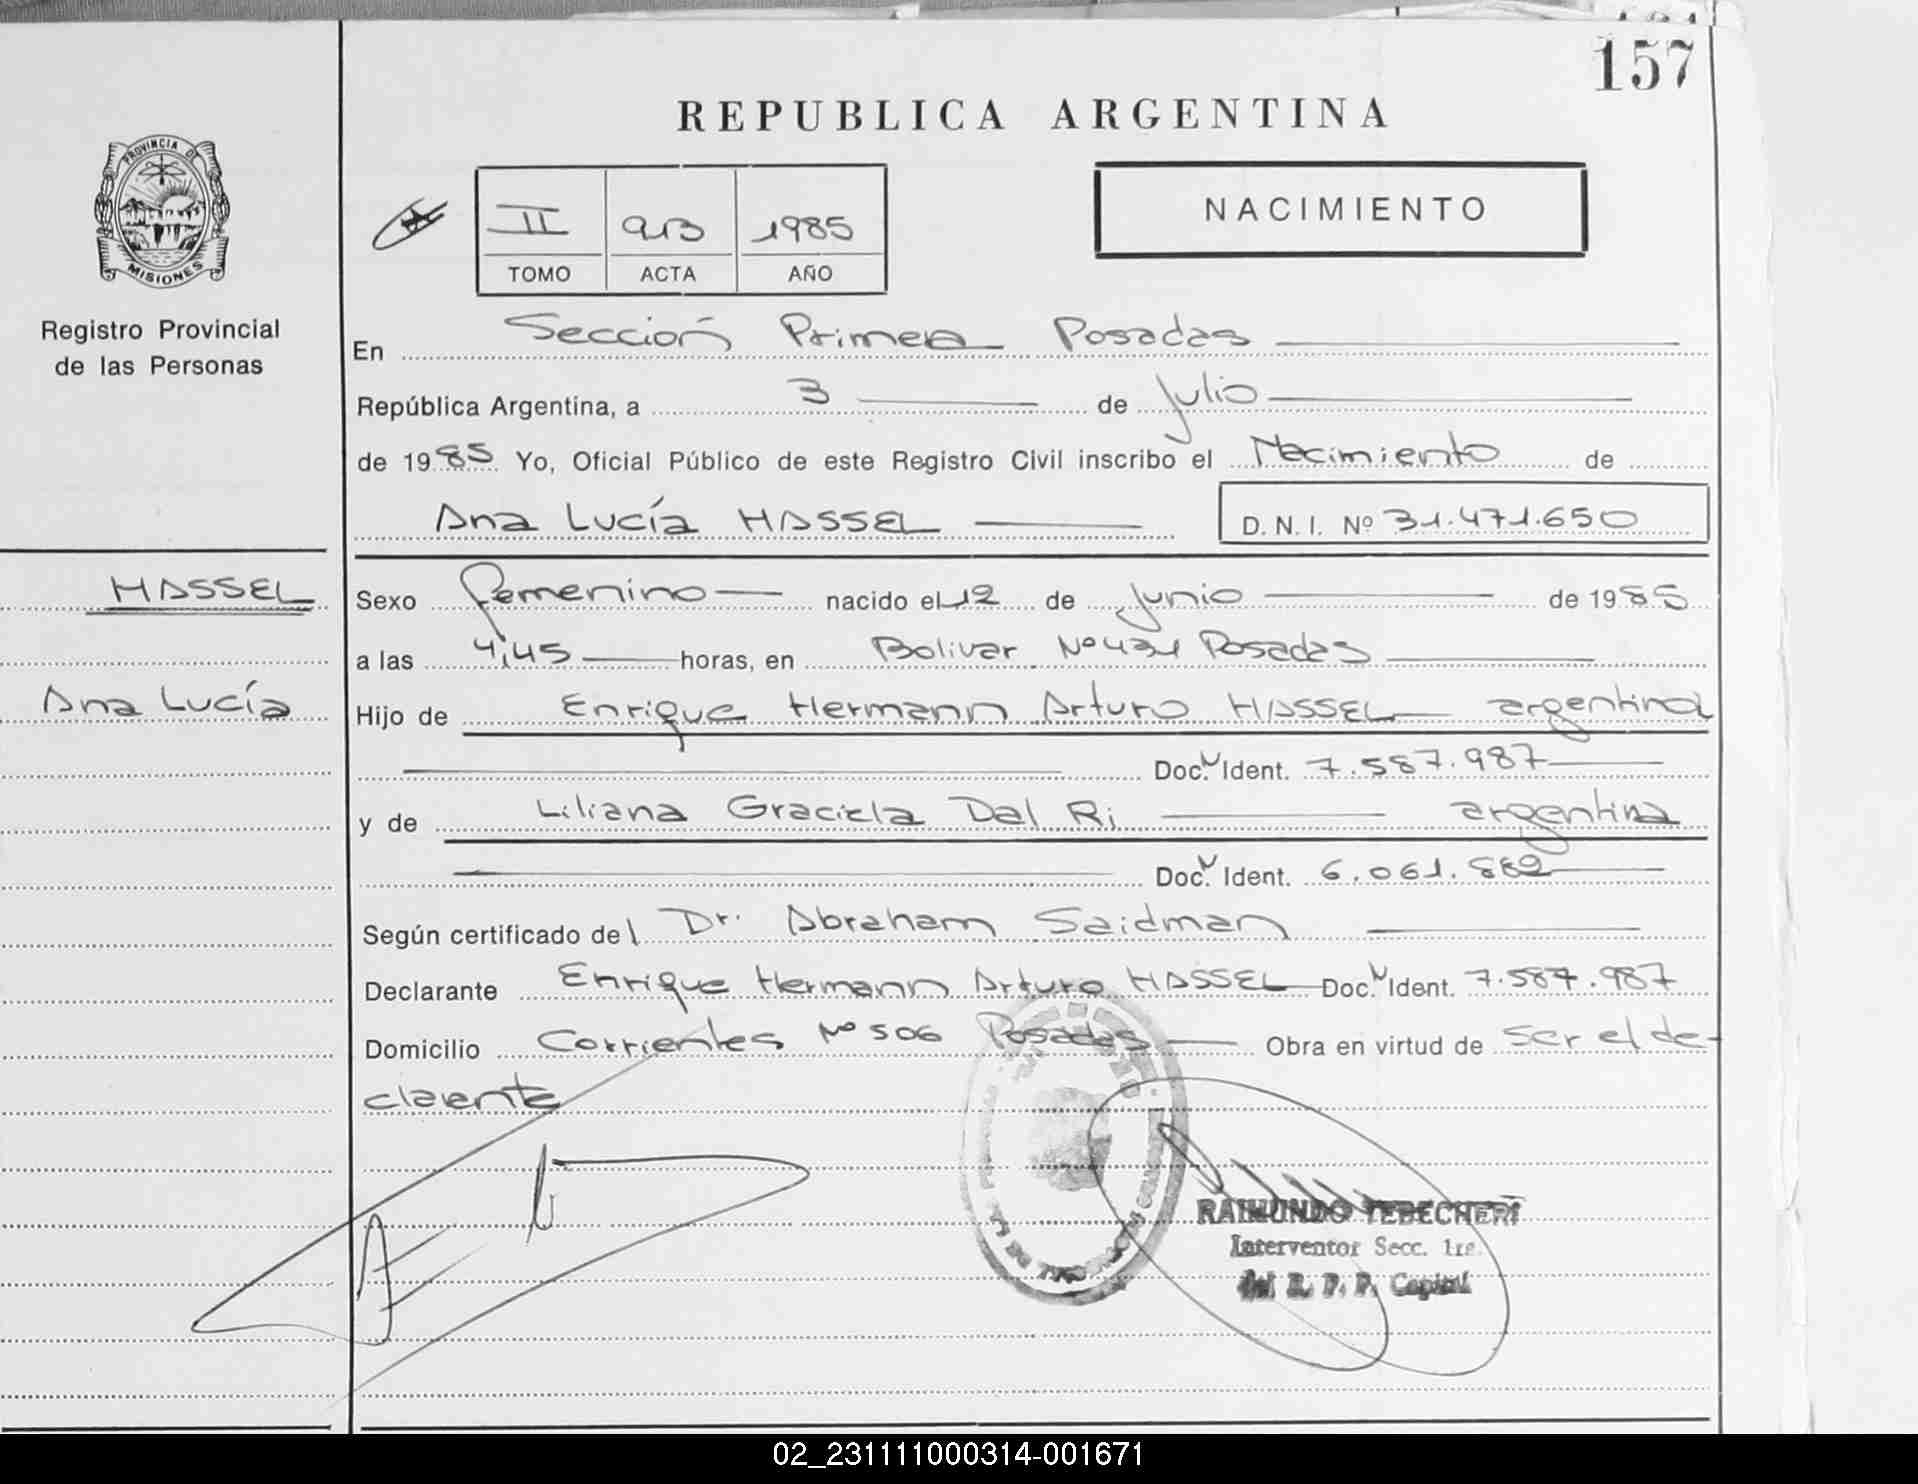 157
REPUBLICA ARGENTINA
PROVINCIA DE
MISIONES
Registro Provincial
de las Personas
II 913 1985
TOMO ACTA AÑO
NACIMIENTO
En Sección Primera Posadas
República Argentina, a 3 de Julio
de 1985 Yo, Oficial Público de este Registro Civil inscribo el Nacimiento de
Ana Lucía HASSEL D. N. I. Nº 31.471.650
HASSEL
Ana Lucía
Sexo femenino nacido el 12 de Junio de 1985
a las 4,45 horas, en Bolivar Nº 431 Posadas
Hijo de Enrique Hermann Arturo HASSEL argentino
Doc. Ident. 7.587.987
y de Liliana Graciela Dal Ri argentina
Doc. Ident. 6.061.882
Según certificado del Dr. Abraham Saidman
Declarante Enrique Hermann Arturo HASSEL Doc. Ident. 7.587.987
Domicilio Corrientes Nº 506 Posadas Obra en virtud de ser el de-
clarante
RAIMUNDO TEBECHERI
Interventor Secc. 1ra.
del R. P. P. Capital
02_231111000314-001671